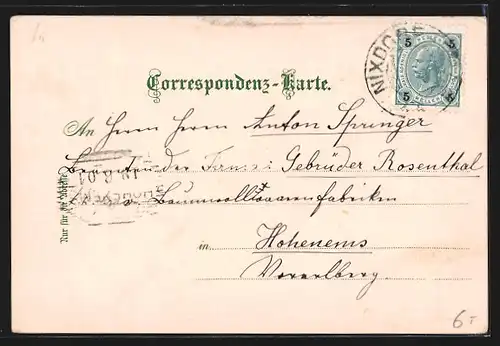 NIXDORF
5 5
5 5
Correspondenz-Karte.
An Herrn Herrn Anton Springer
Beamten der Firma: Gebrüder Rosenthal
Baumwollwaarenfabriken
in Hohenems
Vorarlberg.
Nur für die Adresse
HOHENEMS
6